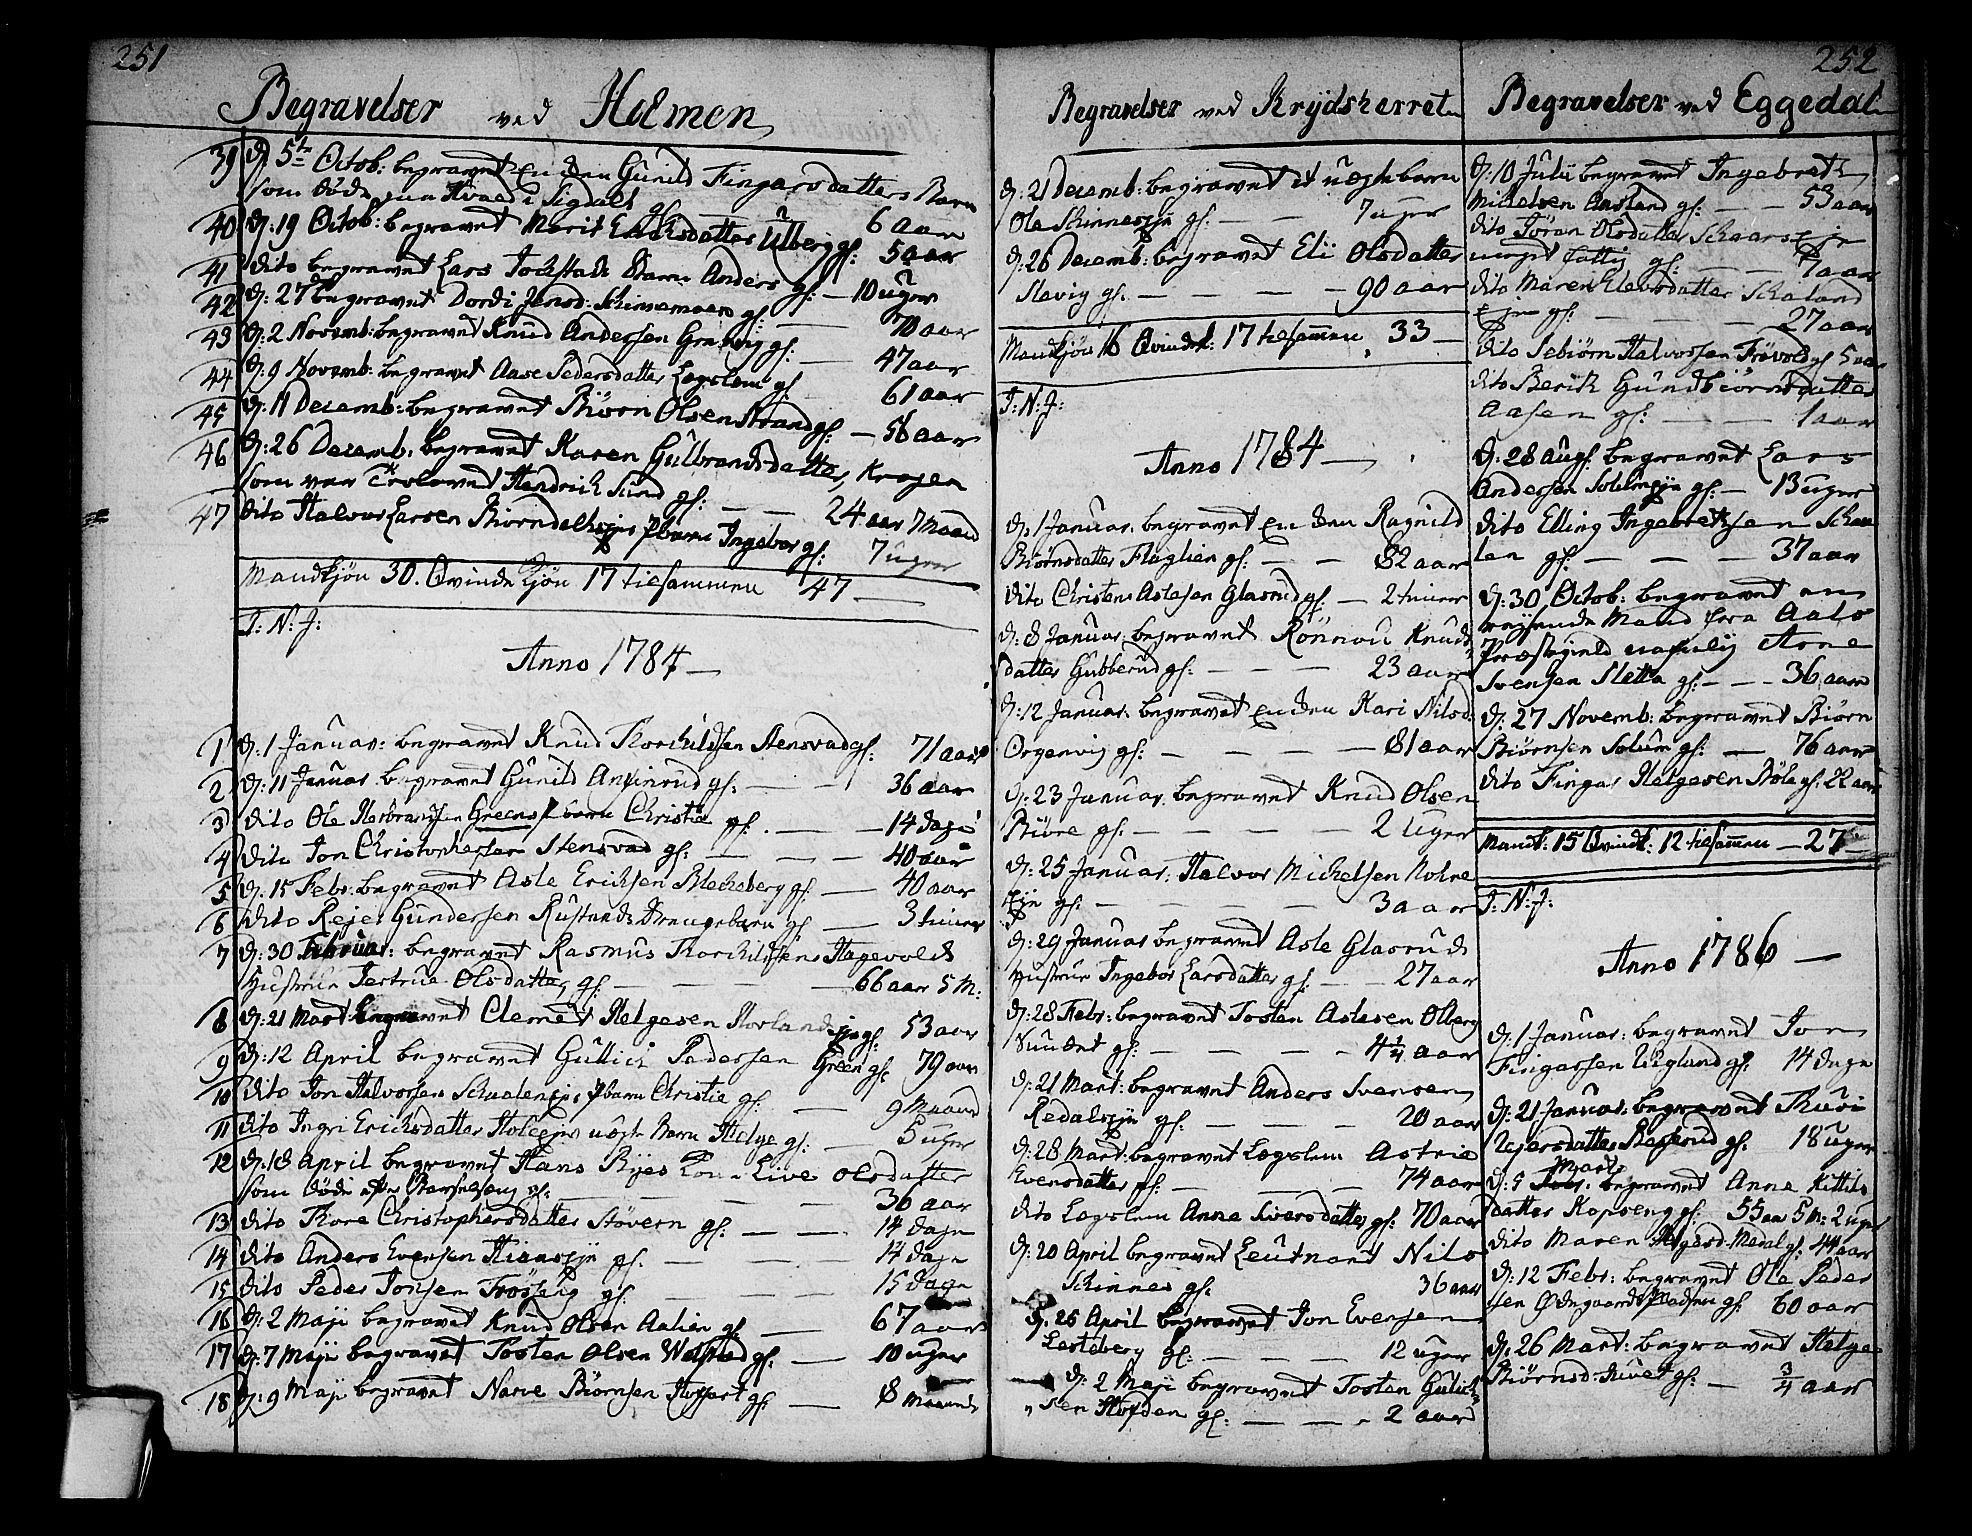 251
Begravelser ved Holmen
39 d. 5te Octob: begravet Gunild Fingarsdatters Barn
som døde i Sigdahl 6 aar
40 d: 19 Octob: begravet Marit Ericksdatter Ulberg gl: 5 aar
41 dito begravet Lars Barn Anders gl: — 10 uger
42 d: 27 begravet Dordi Jensd: Skinnemoen gl: — 70 aar
43 d: 2 Novemb: begravet Knud Andersen gl: — 47 aar
44 d: 9 Novemb: begravet Aase Pedersdatter Lægslem gl — 61 aar
45 d: 11 Decemb: begravet Biørn Olsen Strand gl: — 56 aar
46 d: 26 Decemb: begravet Karen Gulbrandsdatter, Kragen
som var Trolovet Hendrich Lund gl: — — 24 aar 7 Maand
47 dito Halvor Larsen Biørndalseies Pbarn Ingebor gl: 7 uger
Mandkjøn 30. Qvindekjøn 17 tilsammen 47 —
J: N: J:
Anno 1784 —
1 d: 1 Januar: begravet Knud Thorchildsen Stensvad gl: 71 aar
2 d: 11 Januar begravet Gunild Amunrud gl: — — 36 aar
3 dito Ole Herbrandsen Greens Pbarn Christie gl: — — 14 dage
4 dito Jon Christophersen Stensvad gl: — — — 40 aar
5 d: 15 Febr: begravet Asle Ericksen Blechsberg gl: — 40 aar
6 dito Rejer Gundersen Rustands Drengebarn gl — 3 timer
7 d: 30 Februar: begravet Rasmus Thorchildsens Hagevolds
Hustrue Jertrue Olsdatter gl: — — — — 66 aar 5 M:
8 d: 21 Mart begravet Clemet Helgesen Horlands eje gl: 53 aar
9 d: 12 April begravet Gullich Pedersen Green gl: 79 aar
10 dito Jon Halvorsen Skaleneies Pbarn Christie gl: — 9 Maand
11 dito Ingri Ericksdatter Holeejes uægte Barn Helge gl: — 5 uger
12 d: 18 April begravet Hans Ryes Kone Live Olsdatter
som døde efter Barselseng gl: — — — — 36 aar
13 dito Thore Christophersdatter Støvern gl: — — 14 dage
14 dito Anders Evensen Hiemseje gl: — — — 14 dage
15 dito Peder Jonsen Frøseng gl: — — — 15 dage
16 d: 2 Maji begravet Knud Olsen Aalien gl: — 67 aar
17 d: 7 Maji begravet Tosten Olsen Wolstad gl: — 10 uger
18 d: 9 Maji begravet Narve Biørnsen gl: — 8 Maaned
Begravelser ved Krydsherret
d: 21 Decemb: begravet et uægte barn
Ole Skinneseje gl: — — 7 uger
d: 26 Decemb: begravet Eli Olsdatter
Slevig gl: — — — — 90 aar
Mandkjøn 16 Qvindek: 17 tilsammen 33 —
J: N: J:
Anno 1784 —
d: 1 Januar: begravet Ragnild
Biørnsdatter Flaglien gl: — — 82 aar
dito Christen Aslesen Glasrud gl: — 2 timer
d: 8 Januar: begravet Rønnou Knuds
datter Gubberud gl: — — — 23 aar
d: 12 Januar: begravet Kari Nilsd:
Orgenvig gl: — — — — 81 aar
d: 23 Januar: begravet Knud Olsen
Biøre gl: — — — — 2 Uger
d: 25 Januar: Halvor Mickelsen Nohre
eje gl: — — — — 3 aar
d: 29 Januar begravet Asle Glasruds
Hustrue Ingebor Larsdatter gl: — — 27 aar
d: 28 Febr: begravet Tosten Aslesen Olberg
gl: — — — — 4 1/4 aar
d: 21 Mart: begravet Anders Svensen
Redalseje gl: — — — 20 aar
d: 28 Mart: begravet Lægslem Astrie
Evensdatter gl: — — — 74 aar
dito Lægslem Anne Iversdatter gl: 70 aar
d: 20 April begravet Leutnant Nils
Skinnes gl: 36 aar
d. 25 April begravet Jon Evensen
Lesteberg gl: — — — 12 uger
d: 2 Maji begravet Tosten Gulich
sen Hofden gl: — — — 2 aar
252
Begravelser ved Eggedal
d: 10 Julii begravet Ingebreth
Mickelsen Aasland gl: — — 53 aar
dito Jøran Olsdatter Skaarseje
gl: — — 7 aar
dito Maren Elevsdatter Skaland
eje gl: — — — 27 aar
dito Sebiørn Halvorsen Frøvold gl 5 aar
dito Berith Gundbiørnsdatter
Aasen gl: — — — 1 aar
d: 28 Aug: begravet Lars
Andersen Solemeje gl: — 13 uger
dito Elling Ingebrethsen Skaa
len gl: — — — 37 aar
d: 30 Octob: begravet en
rejsende Mand fra Aals
Præstegield nafnlig Arne
Svensen Sletta gl: — — 36 aar
d: 27 Novemb: begravet Biørn
Biørnsen Solum gl: — 76 aar
dito Fingar Helgesen Bøle gl: 22 aar
Mandk: 15 Qvindk: 12 tilsammen — 27 —
J: N: J:
Anno 1786 —
d: 1 Januar: begravet Jon
Fingarsen Uglund gl: 14 dage
d: 21 Januar: begravet Thuri
Rejersdatter gl: 18 uger
d: 5 Mart: begravet Anne Kittils
datter Kopseng gl: 55 aar 5 M: 2 uger
dito Maren Helgesd: Medal gl: 44 aar
d: 12 Febr: begravet Ole Peder
sen Ødegaards gl: 60 aar
d: 26 Mart: begravet Helge
Biørnsd: gl: — 3/4 aar